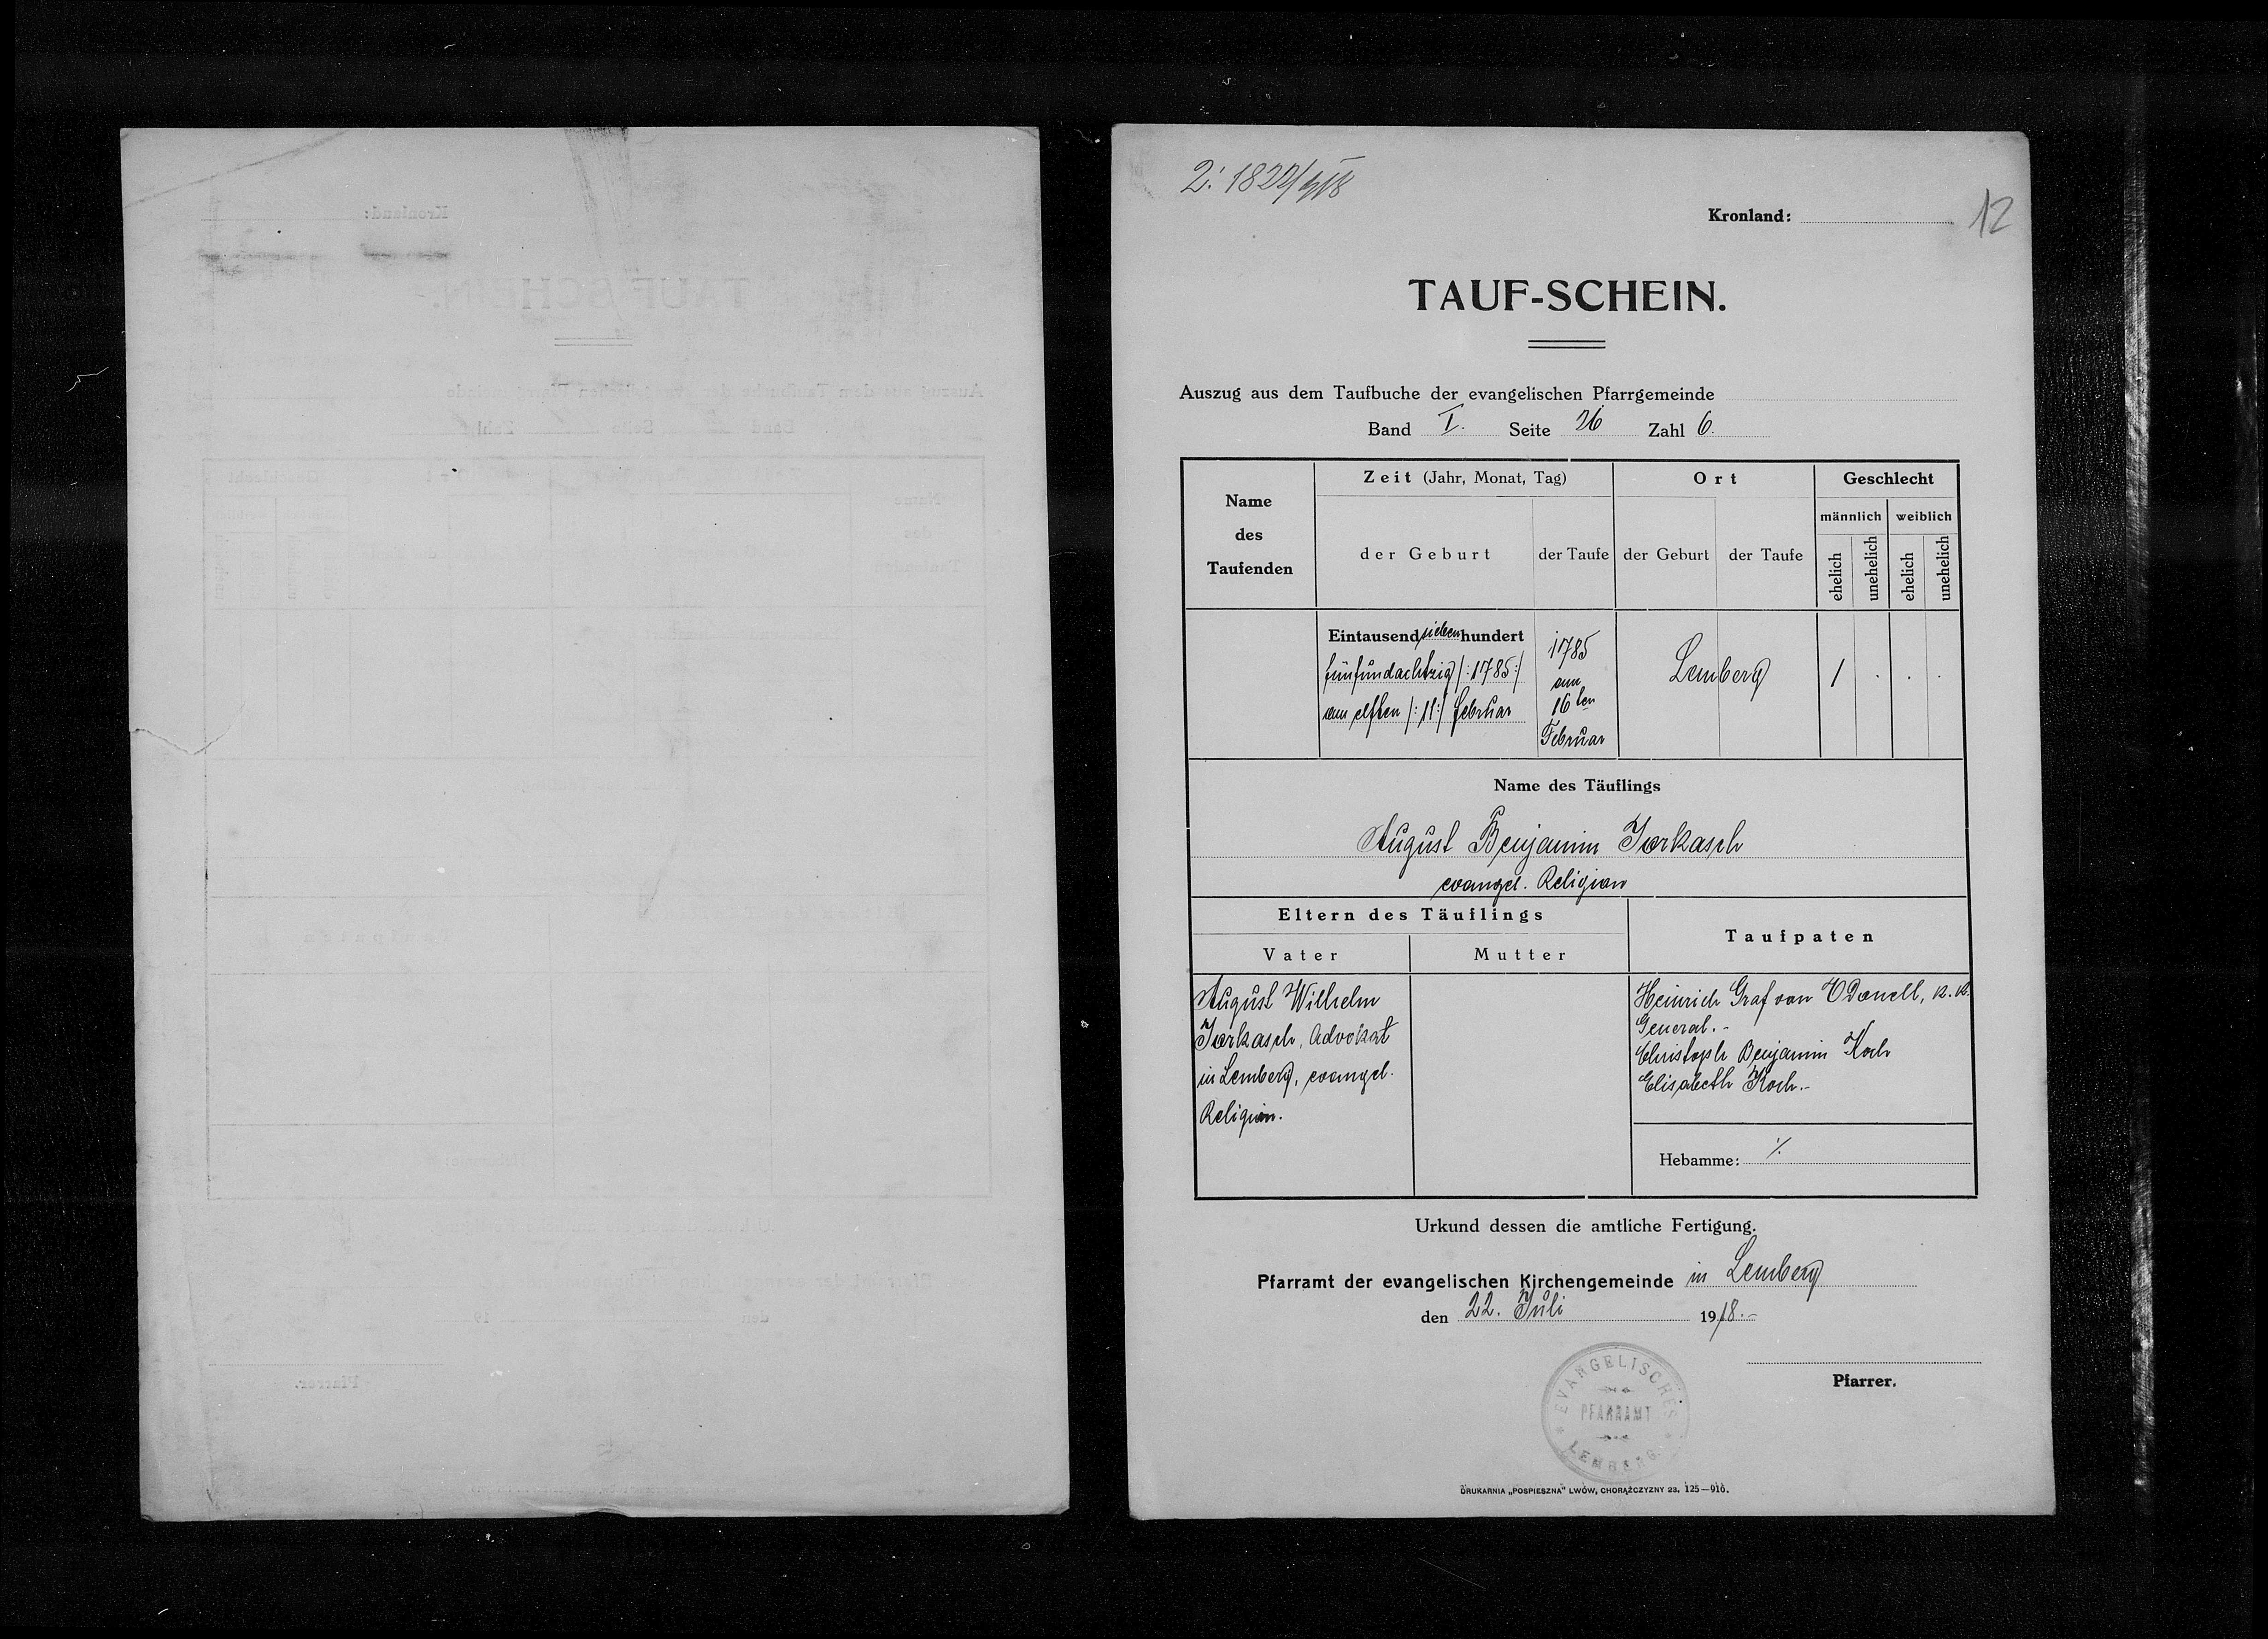 Z: 1822/918
Kronland:
12
TAUF-SCHEIN.
Auszug aus dem Taufbuche der evangelischen Pfarrgemeinde
Band I. Seite 26 Zahl 6.
Name des Taufenden
Zeit (Jahr, Monat, Tag)
Ort
Geschlecht
der Geburt
der Taufe
der Geburt
der Taufe
männlich
weiblich
ehelich
unehelich
ehelich
unehelich
Eintausend sieben hundert
fünfundachtzig /:1785:/
am elften /:11:/ Februar
1785
am
16ten
Februar
Lemberg
1 . . .
Name des Täuflings
August Benjamin Jorkasch
evangel. Religion
Eltern des Täuflings
Taufpaten
Vater
Mutter
August Wilhelm
Jorkasch, Advokat
in Lemberg, evangel.
Religion.
Heinrich Graf von ODonell, k. k.
General.-
Christoph Benjamin Koch
Elisabeth Koch.-
Hebamme: ·/.
Urkund dessen die amtliche Fertigung.
Pfarramt der evangelischen Kirchengemeinde in Lemberg
den 22. Juli 1918.-
EVANGELISCHES
PFARRAMT
LEMBERG
Pfarrer.
DRUKARNIA „POSPIESZNA" LWÓW, CHORĄŻCZYZNY 23. 125—910.